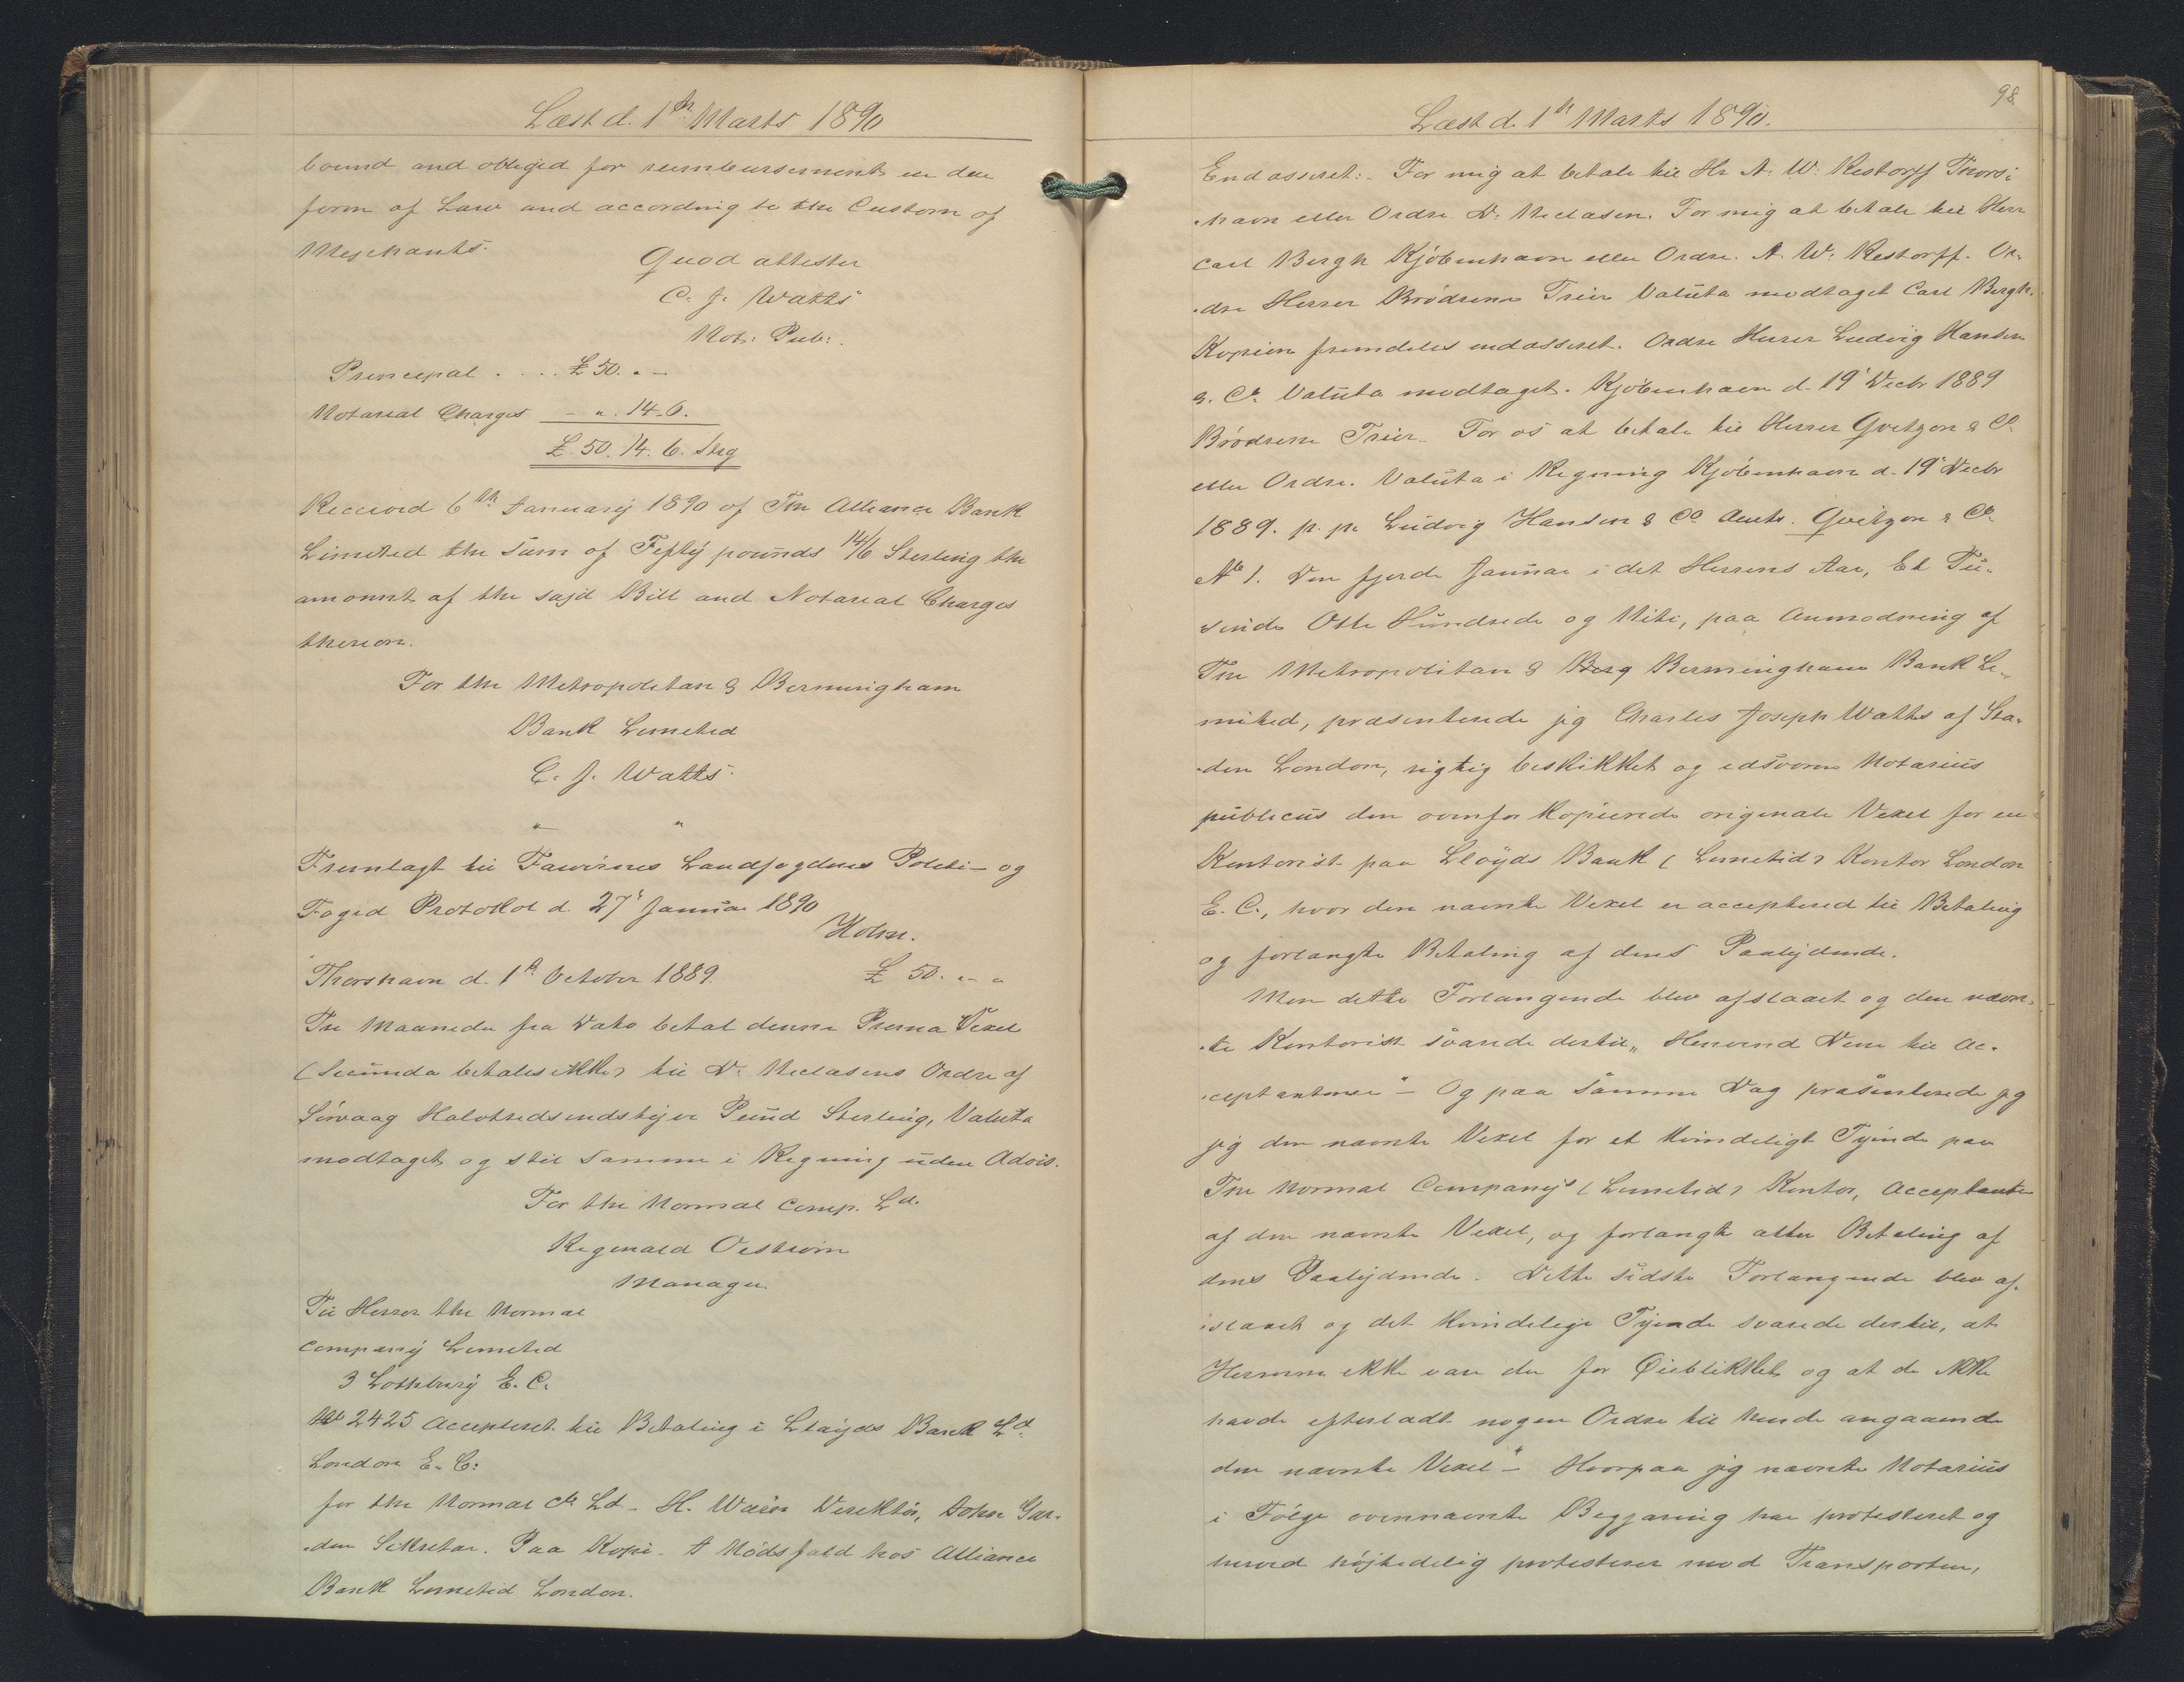 Læst d. 1ste Marts 1890
bound and obliged for reimbursement in due
form of Law and according to the Custom of
Mejchants.
Quod attester
C. J. Watts
Not: Pub:
Principal . . . . £ 50. " -
Notarial Charges - ". 14. 6.
£ 50. 14. 6. Strg
Received 6th January 1890 of The Alliance Bank
Limited the Sum of Fifty pounds 14/6 Sterling the
amount of the sajd Bill and Notarial Charges
thereon.
For the Metropolitan & Birmingham
Bank Limited
C. J. Watts.
" "
Fremlagt til Færöernes Landfogderies Politi- og
Foged Protokol d. 27' Januar 1890
Holm.
Thorshavn d. 1ste October 1889. £ 50. " "
Tre Maaneder fra Dato betal denne Prima Vexel
(Secunda betales ikke) til D. Niclasens Ordre af
Sörvaag Halvtredsindstyve Pund Sterling, Valuta
modtaget og stil samme i Regning uden Advis.
For the Normal Comp. Ld.
Reginald Oeström
Manager
Til Herrer the Normal
Company Limited
3 Lothbury E. C.
No 2425 Accepteret til Betaling i Lloyds Bank Ld.
London E. C:
for the Normal Co Ld - H. Direktör, John Gar-
-den Sekretær. Paa Kopi - I Nödsfald hos Alliance
Bank Limited London.
98
Læst d. 1ste Marts 1890.
Endosseret:- For mig at betale til Hr A. W. Restorff Thors-
-havn eller Ordre D. Niclasen. For mig at betale til Herr
Carl Bergh Kjöbenhavn eller Ordre. A. W. Restorff. Or-
-dre Herrer Brödrene Trier Valuta modtaget Carl Bergh.
Kopien fremdeles endosseret. Ordre Herrer Ludvig Hansen
& Co. Valuta modtaget. Kjöbenhavn d. 19' Decbr 1889
Bröodrene Trier. For os at betale til Herrer Gvitzon & Co.
eller Ordre. Valuta i Regning Kjöbenhavn d. 19' Decbr
1889. p. pr Ludvig Hansen & Co Gvitzon & Co.
No 1. Den fjerde Januar i det Herrens Aar, Et Tu-
sinde Otte Hundrede og Niti, paa Anmodning af
The Metropolitan & Berg Bermingham Bank Li-
mited, præsenterede jeg Charles Joseph Watts af Sta-
-den London, rigtig beskikket og edsvoren Notarius
publicus den ovenfor kopierede originale Vexel for en
Kontorist paa Lloyds Bank (Limited) Kontor London
E. C., hvor den nævnte Vexel er acceptered til Betaling
og forlangte Betaling af dens Paalydende.
Men dette Forlangende blev afslaaet og den nævn-
-te Kontorist svarede dertil „ Henvend Dem til Ac-
-ceptanterne" - Og paa Samme Dag præsenterede jeg
jeg den nævnte Vexel for et kvindeligt Tyende paa
The Normal Company's (Limited) Kontor, Acceptante
af den nævnte Vexel, og forlangte atter Betaling af
dens Paalydende. Dette sidste Forlangende blev af-
-slaaet og det kvindelige Tyende svarede dertil, at
Herrerne ikke vare der for Öieblikket og at de ikke
havde efterladt nogen Ordre til hende angaaende
den nævnte Vexel" - Hvorpaa jeg nævnte Notarius
i Fölge ovennævnte Begjæring har protesteret og
herved höjtidelig protesterer mod Transporten,